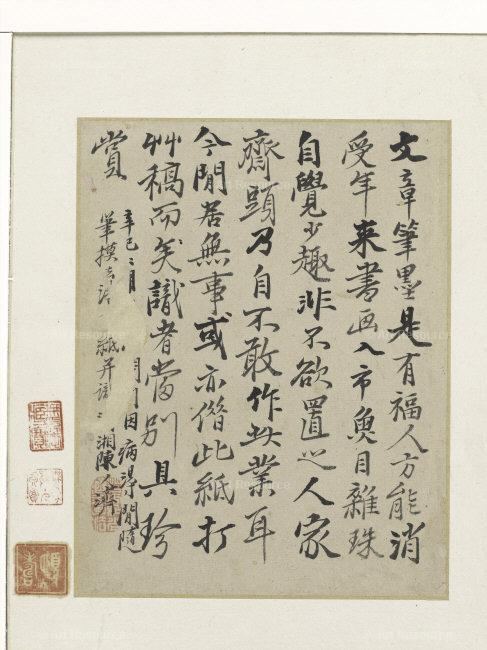 文章筆墨是有福人方能消
受年来書画入市魚目雜珠
自覺少趣非不欲置之人家
齋頭乃自不敢作此業耳
今閒居無事或亦借此紙打
艸稿而矣識者當別具珍
賞
辛巳二月 因病得閒隨
筆摸 紙并 湘陳人